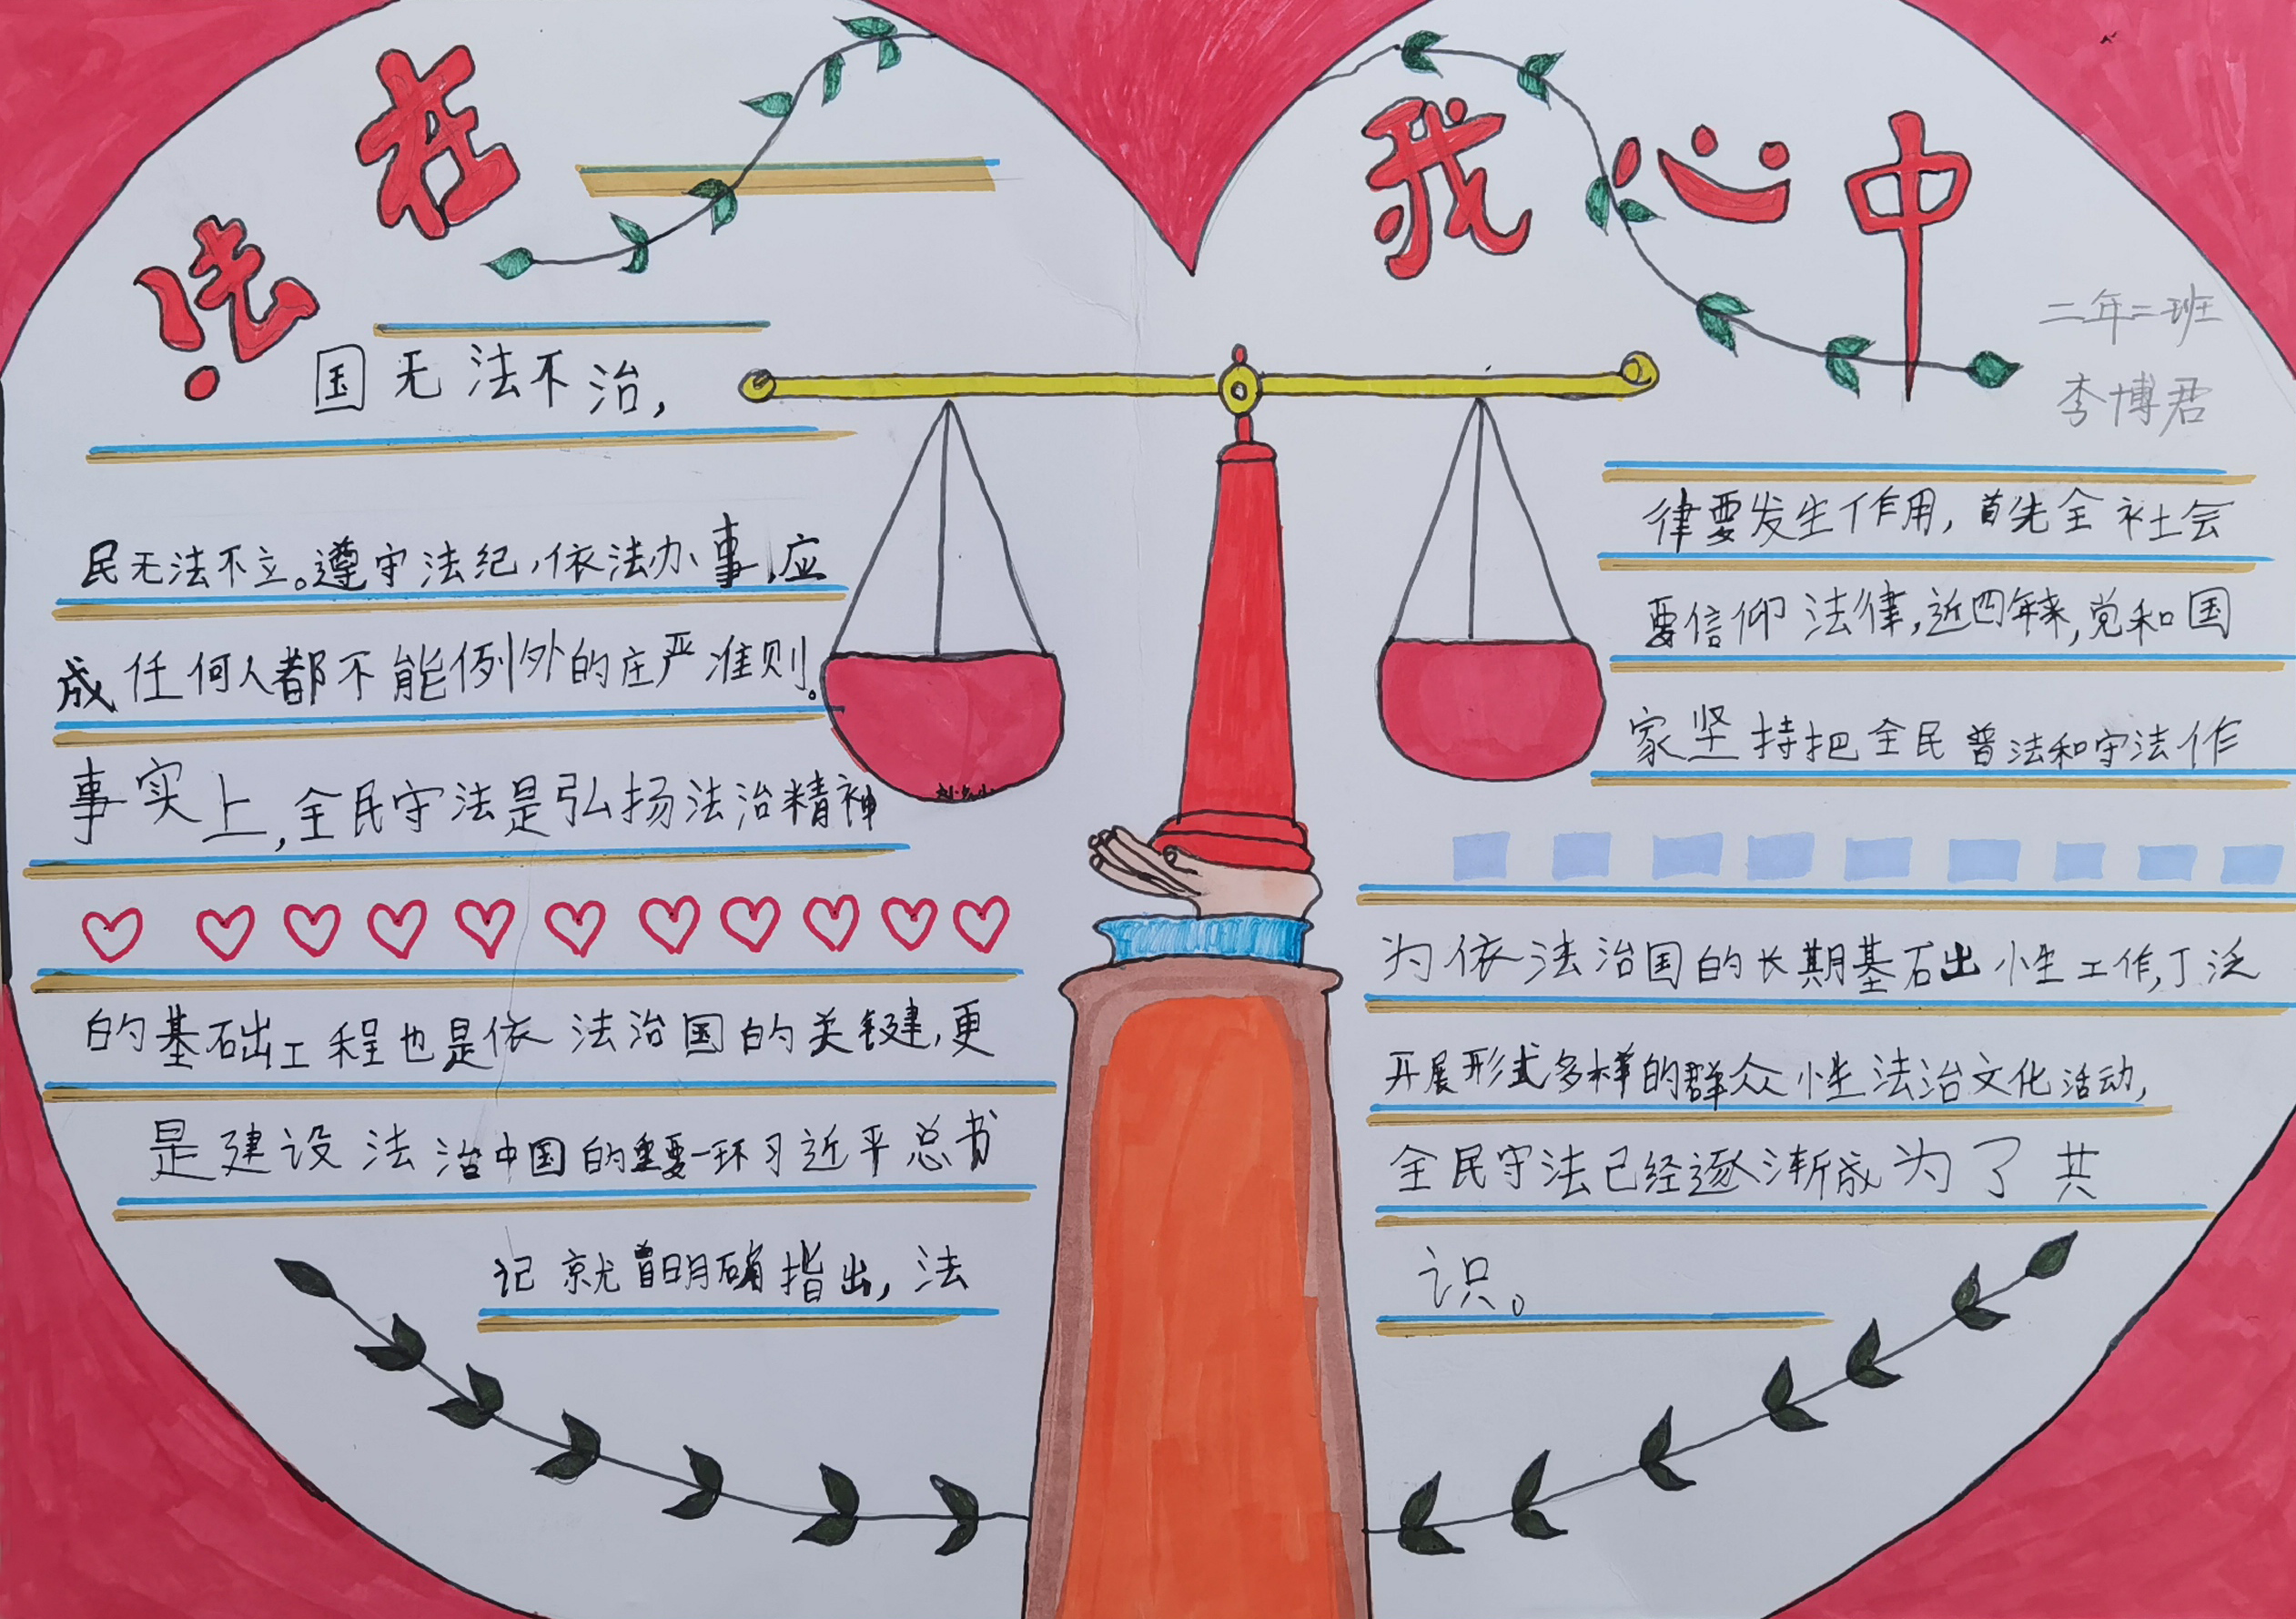 法在我心中
二年二班
李博君
国无法不治,
民无法不立。遵守法纪,依法办事,应
成任何人都不能例外的庄严准则。
事实上,全民守法是弘扬法治精神
的基础工程也是依法治国的关键,更
是建设法治中国的重要一环习近平总书
记就曾明确指出,法
律要发生作用,首先全社会
要信仰法律,近四年来,党和国
家坚持把全民普法和守法作
为依法治国的长期基础性工作,广泛
开展形式多样的群众性法治文化活动,
全民守法已经逐渐成为了共
识。